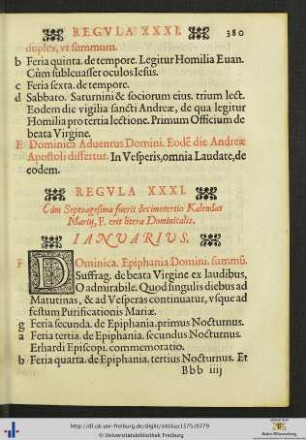 REGVLA XXXI. 380
duplex, vt summum.
b Feria quinta. de tempore. Legitur Homilia Euan.
Cùm subleuasset oculos Iesus.
c Feria sexta. de tempore.
d Sabbato. Saturnini & sociorum eius. trium lect.
Eodem die vigilia sancti Andreæ, de qua legitur
Homilia pro tertia lectione. Primum Officium de
beata Virgine.
E Dominica Aduentus Domini. Eodẽ die Andreæ
Apostoli differtur. In Vesperis, omnia Laudate, de
eodem.
REGVLA XXXI.
Cùm Septuagesima fuerit decimotertio Kalendas
Martij, F. erit litera Dominicalis.
IANVARIVS.
F DOminica. Epiphania Domini. summũ.
Suffrag. de beata Virgine ex laudibus,
O admirabile. Quod singulis diebus ad
Matutinas, & ad Vesperas continuatur, vsque ad
festum Purificationis Mariæ.
g Feria secunda. de Epiphania. primus Nocturnus.
a Feria tertia. de Epiphania. secundus Nocturnus.
Erhardi Episcopi. commemoratio.
b Feria quarta. de Epiphania. tertius Nocturnus. Et
Bbb iiij
http://dl.ub.uni-freiburg.de/diglit/stttitus1575/0779
© Universitätsbibliothek Freiburg